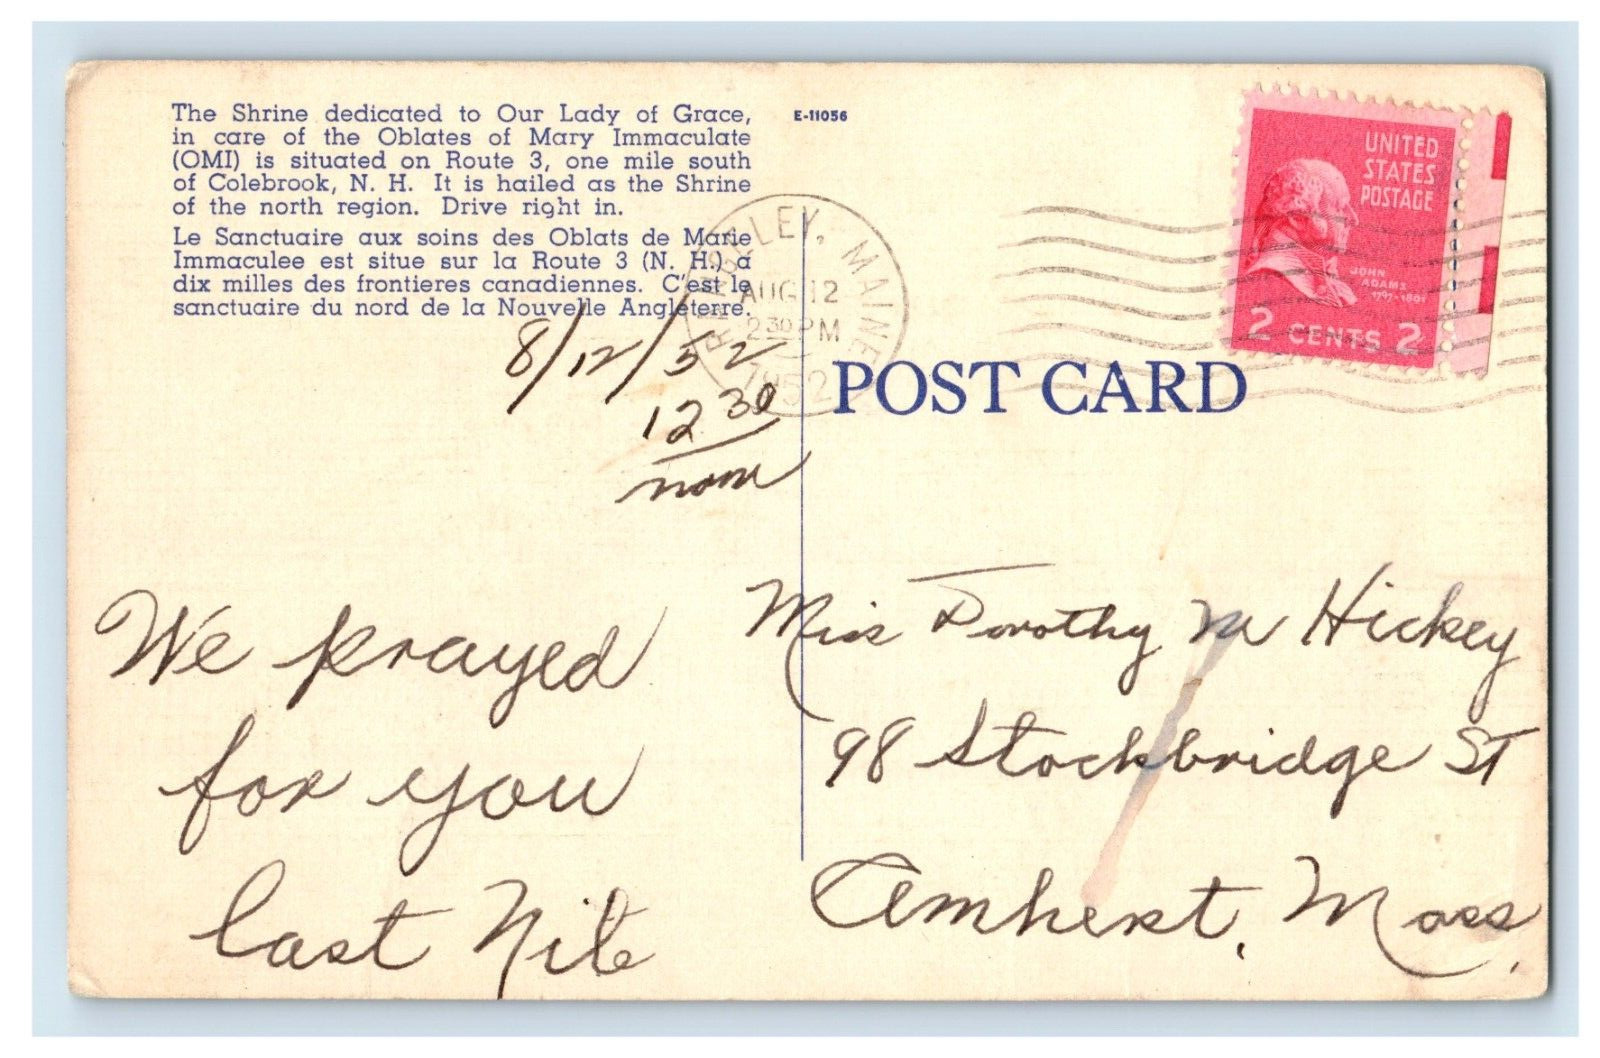 The Shrine dedicated to Our Lady of Grace,
in care of the Oblates of Mary Immaculate
(OMI) is situated on Route 3, one mile south
of Colebrook, N. H. It is hailed as the Shrine
of the north region. Drive right in.
Le Sanctuaire aux soins des Oblats de Marie
Immaculee est situe sur la Route 3 (N. H.) á
dix milles des frontieres canadiennes. C'est le
sanctuaire du nord de la Nouvelle Angleterre.
E-11056
RANGELEY, MAINE
AUG 12
2 30 PM
1952
UNITED
STATES
POSTAGE
JOHN
ADAMS
1797-1801
2 CENTS 2
POST CARD
8/12/52
12 30
noon
We prayed
for you
last Nite
Miss Dorothy M Hickey
98 Stockbridge ST
Amherst, Mass.